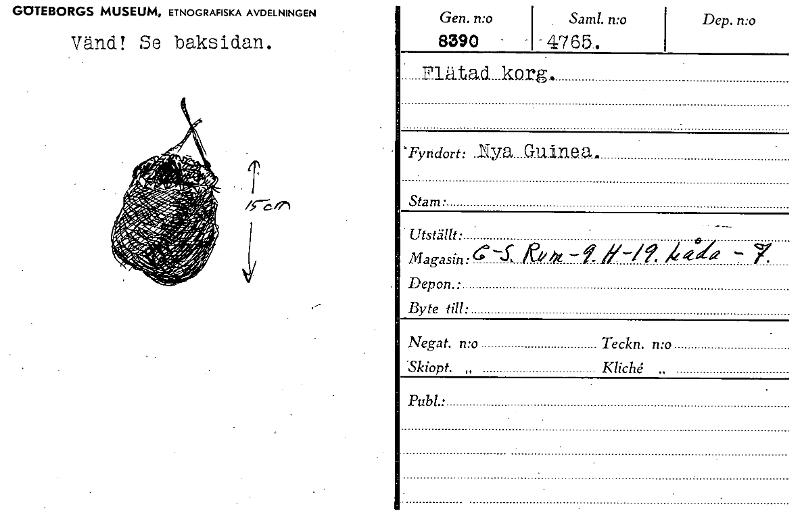 GÖTEBORGS MUSEUM, ETNOGRAFISKA AVDELNINGEN
Vänd! Se baksidan.
15cm
Gen. n:o Saml. n:o Dep. n:o
8390 4765.
Flätad korg.
Fyndort: Nya Guinea.
Stam:
Utställt:
Magasin: C-S. Rum-9. H-19. Låda - 7.
Depon.:
Byte till:
Negat. n:o Teckn. n:o
Skiopt. „ Kliché „
Publ.: